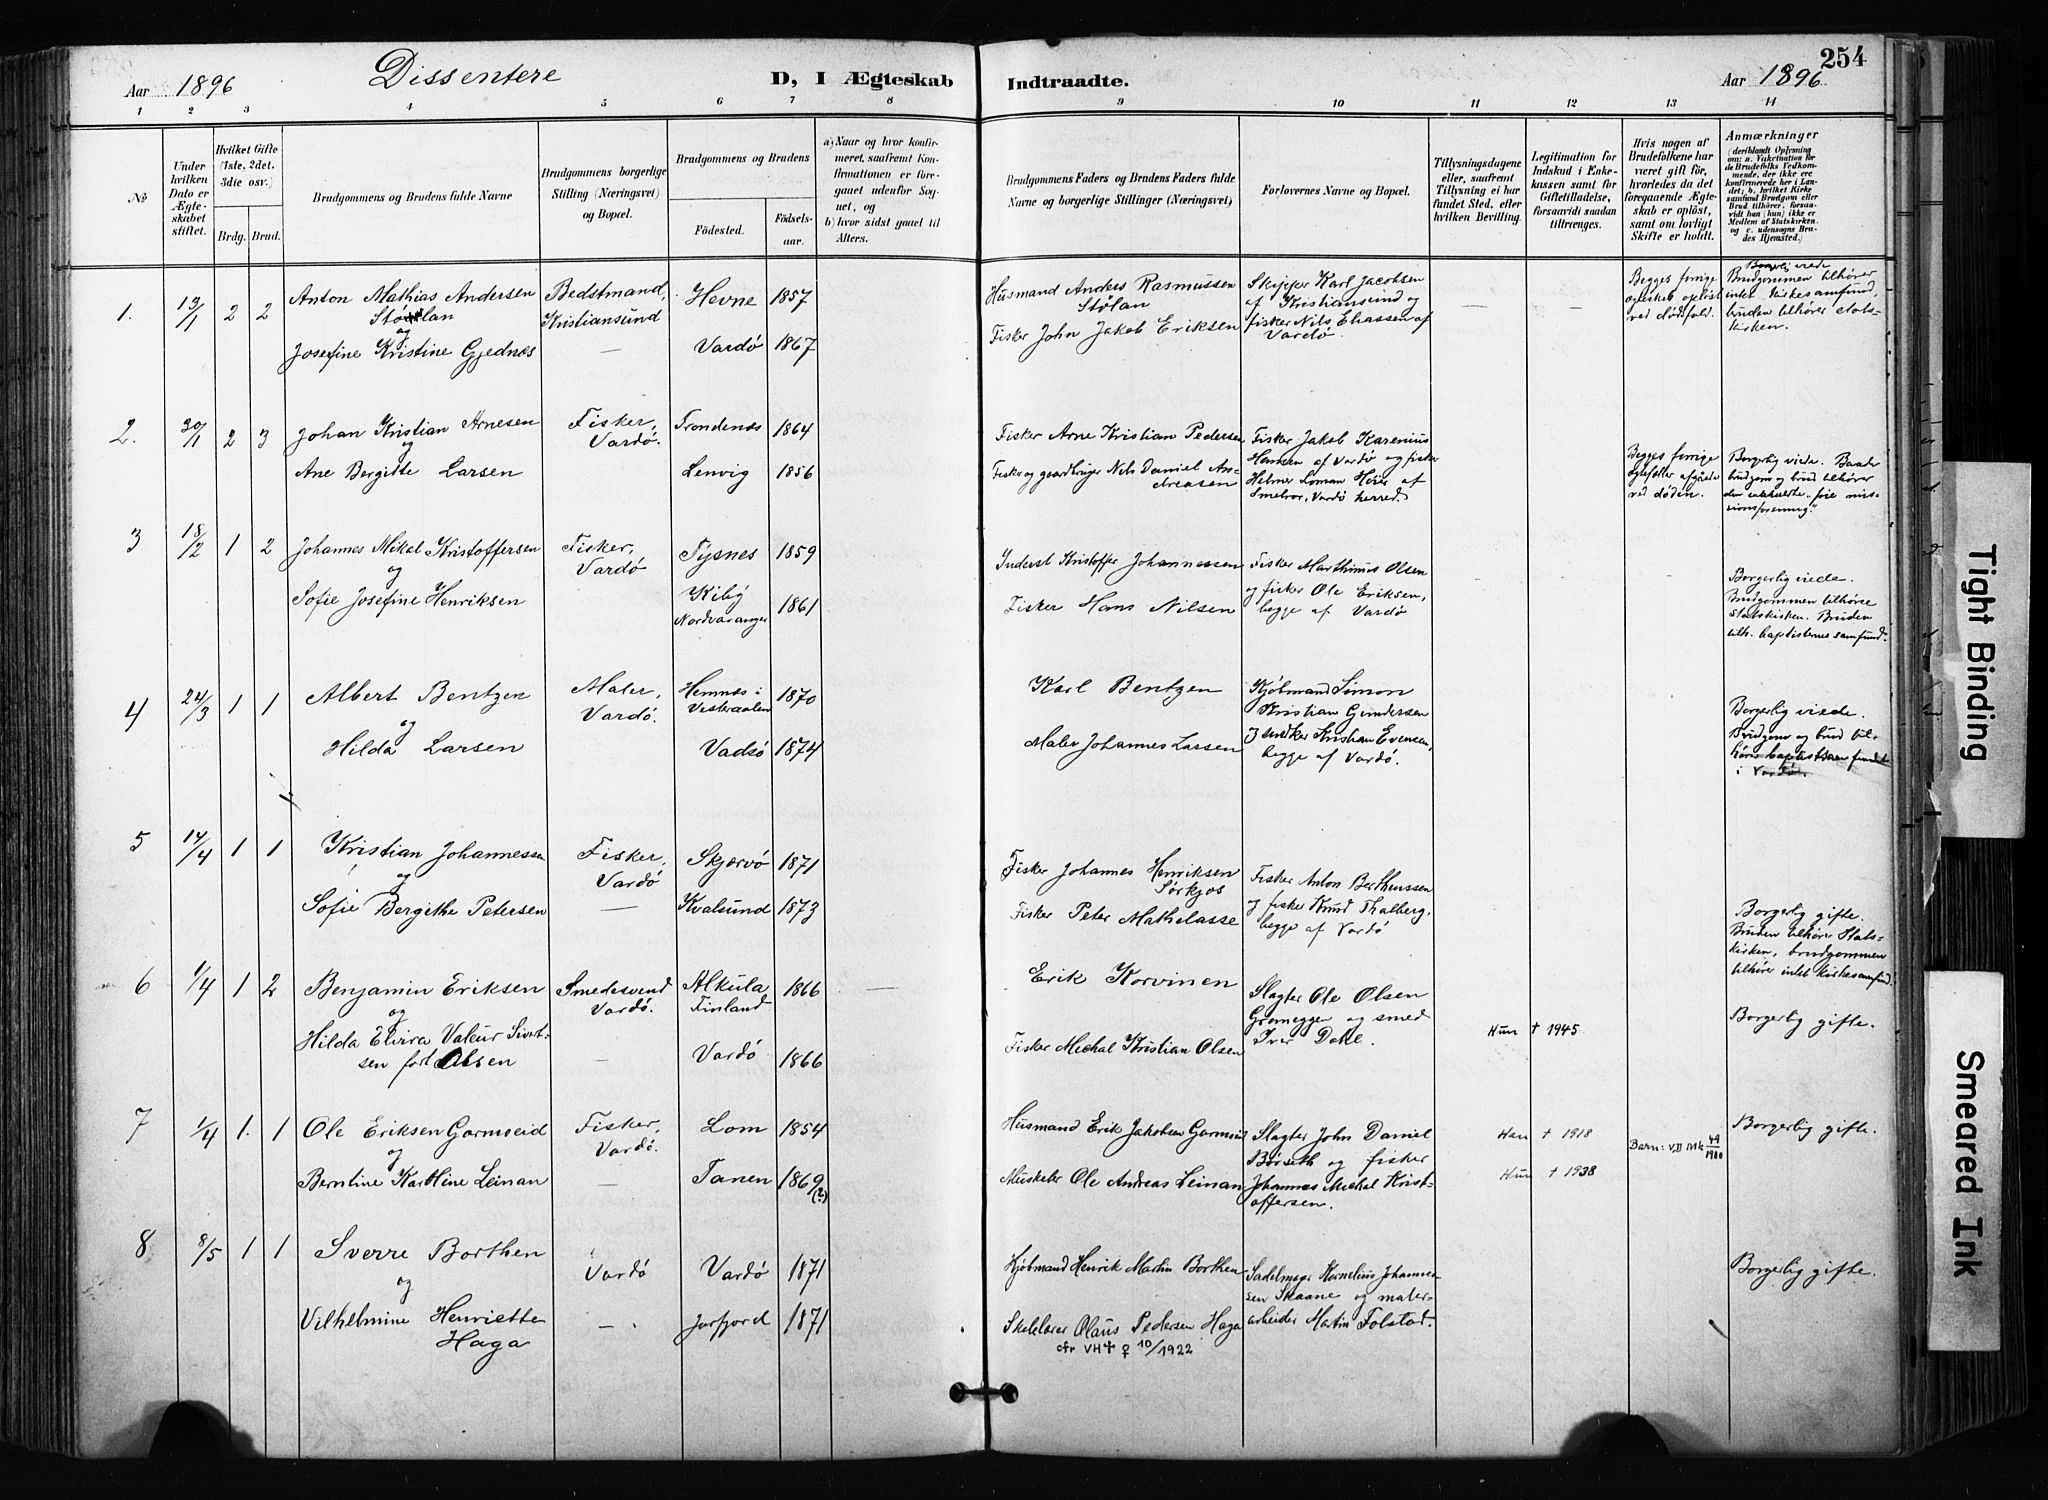 254
Aar 1896 Dissentere D, I Ægteskab Indtraadte. Aar 1896
1 2 3 4 5 6 7 8 9 10 11 12 13 14
№
Under hvilken Dato er Ægteskabet stiftet.
Hvilket Gifte (1ste, 2det, 3die osv.)
Brdg. Brud.
Brudgommens og Brudens fulde Navne
Brudgommens borgerlige Stilling (Næringsvei) og Bopæl.
Brudgommens og Brudens
Fødested.
Fødselsaar.
a) Naar og hvor konfirmeret, saafremt Konfirmationen er foregaaet udenfor Sognet, og
b) hvor sidst gaaet til Alters.
Brudgommens Faders og Brudens Faders fulde Navne og borgerlige Stillinger (Næringsvei)
Forlovernes Navne og Bopæl.
Tillysningsdagene eller, saafremt Tillysning ei har fundet Sted, efter hvilken Bevilling.
Legitimation for Indskud i Enkekassen samt for Giftetilladelse, forsaavidt saadan tiltrænges.
Hvis nogen af Brudefolkene har været gift før, hvorledes da det foregaaende Ægteskab er opløst, samt om lovligt Skifte er holdt.
Anmærkninger
(deriblandt Oplysning om: a. Vakcination for de Brudefolks Vedkommende, der ikke ere konfirmerede her i Landet; b. hvilket Kirkesamfund Brudgom eller Brud tilhører, forsaavidt han (hun) ikke er Medlem af Statskirken, og c. udensogns Brudes Hjemsted.)
1. 13/1 2 2
Anton Mathias Andersen
Stølan
og
Josefine Kristine Gjednæs
Bedstmand,
Kristiansund
—
Hevne 1857
Vardø 1867
Husmand Anders Rasmussen
Stølan
Fisker John Jakob Eriksen
Skipper Karl Jacobsen
af Kristiansund og
fisker Nils Eliassen af
Vardø.
— —
Begges forrige
egteskab opløst
ved dødsfald.
Borgerlig viede
Brudgommen tilhører
intet kirkesamfund,
bruden tilhører stats-
kirken.
2. 30/1 2 3
Johan Kristian Arnesen
og
Ane Bergitte Larsen
Fisker,
Vardø.
Trondenæs 1864
Lenvig 1856
Fisker Arne Kristian Pedersen
Fisker og gaardbruger Nils Daniel An-
dreasen
Fisker Jakob Karenius
Hansen af Vardø og fisker
Helmer Loman af
Smelror, Vardø herred.
Begges forrige
egtefæller afgåede
ved døden.
Borgerlig viede. Baade
brudgom og brud tilhører
den frie mis-
sionsforening.
3 18/2 1 2
Johannes Mikal Kristoffersen
og
Sofie Josefine Henriksen
Fisker,
Vardø
Tysnes 1859
Kiby
Nordvaranger 1861
Inderst Kristoffer Johannessen
Fisker Hans Nilsen
Fisker Marthinus Olsen
og fisker Ole Eriksen,
begge af Vardø
Borgerlig viede.
Brudgommen tilhører
statskirken. Bruden
tilh. baptisternes samfund.
4 24/3 1 1
Albert Bentzen
og
Hilda Larsen
Maler,
Vardø.
Hemnes i
Vesteraalen 1870
Vadsø 1874
Karl Bentzen
Maler Johannes Larsen
Kjøbmand Simon
Kristian Gundersen
og snedker Kristian Evensen,
begge af Vardø.
Borgerlig viede.
Brudgom og brud til-
hører baptistsamfundet
i Vardø.
5 14/4 1 1
Kristian Johannessen
og
Sofie Bergithe Petersen
Fisker,
Vardø
—
Skjærvø 1871
Kvalsund 1873
Fisker Johannes Henriksen
Sørkjos
Fisker Peter Mathelasse
Fisker Anton Bertheussen
og fisker Knud Thalberg,
begge af Vardø
Borgerlig gifte.
Bruden tilhører Stats-
kirken, brudgommen
tilhører intet kirkesamfund.
6 1/4 1 2
Benjamin Eriksen
og
Hilda Elvira Valeur Sivert-
sen født Olsen
Smedesvend
Vardø.
—
Alkula
Finland 1866
Vardø 1866
—
Erik Korvinen
Fisker Michal Kristian Olsen
Slagter Ole Olsen
Grøneggen og smed
Iver Dokl.
Hun † 1945
Borgerlig gifte.
7 1/4 1. 1
Ole Eriksen Garmseid
og
Berntine Karoline Leinan
Fisker,
Vardø.
—
Lom 1854
Tanen 1869 (?)
Husmand Erik Jakobsen Garmseid
Musketer Ole Andreas Leinan
Slagter John Daniel
Børseth og fisker
Johannes Michal Krist-
offersen.
Han † 1918
Hun † 1938
Barn: VD Mk 49/1900
Borgerlig gifte.
8 8/5 1 1
Sverre Borthen
og
Vilhelmine Henriette
Haga
Vardø
—.
Vardø 1871
Jarfjord 1871
Kjøbmand Henrik Martin Borthen
Skolelærer Olaus Pedersen Haga
cfr VH † ♀ 10/1922
Sadelmager Kornelius Johannes-
sen Skaane og maler-
arbeider Martin Folstad.
Borgerlig gifte.
Tight Binding
Smeared Ink